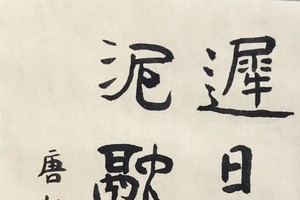 遲日
泥融
唐